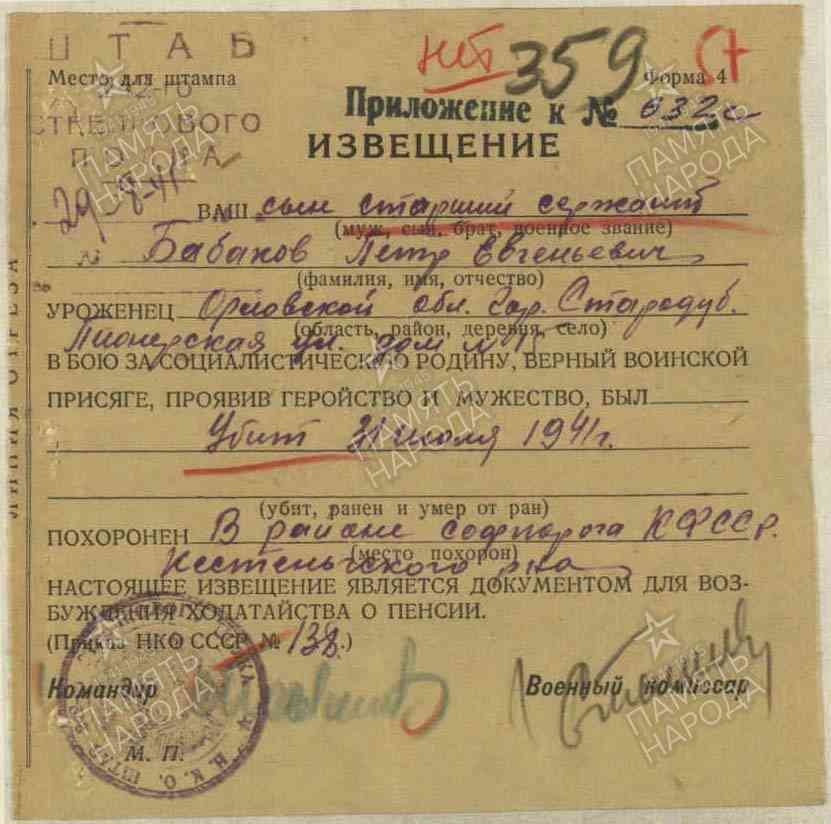 ШТАБ
нет 359 57
Место для штампа Форма 4
СТРЕЛКОВОГО Приложение к № 632с
ПОЛКА ИЗВЕЩЕНИЕ
29-8-41
ВАШ сын старший сержант
(муж, сын, брат, военное звание)
Бабаков Петр Евгеньевич
(фамилия, имя, отчество)
УРОЖЕНЕЦ Орловской обл. гор. Стародуб.
(область, район, деревня, село)
Пионерская ул. дом №
В БОЮ ЗА СОЦИАЛИСТИЧЕСКУЮ РОДИНУ, ВЕРНЫЙ ВОИНСКОЙ
ПРИСЯГЕ, ПРОЯВИВ ГЕРОЙСТВО И МУЖЕСТВО, БЫЛ
Убит 31 июля 1941г.
(убит, ранен и умер от ран)
ПОХОРОНЕН В районе софпорога КФССР.
(место похорон)
Кестеньгского р-на
НАСТОЯЩЕЕ ИЗВЕЩЕНИЕ ЯВЛЯЕТСЯ ДОКУМЕНТОМ ДЛЯ ВОЗ-
БУЖДЕНИЯ ХОДАТАЙСТВА О ПЕНСИИ.
(Приказ НКО СССР № 138.)
Командир Военный комиссар
М. П.
ЛИНИЯ ОТРЕЗА
Н.К.О. ШТАБ
ПАМЯТЬ НАРОДА
ПАМЯТЬ НАРОДА
ПАМЯТЬ НАРОДА
ПАМЯТЬ НАРОДА
ПАМЯТЬ НАРОДА